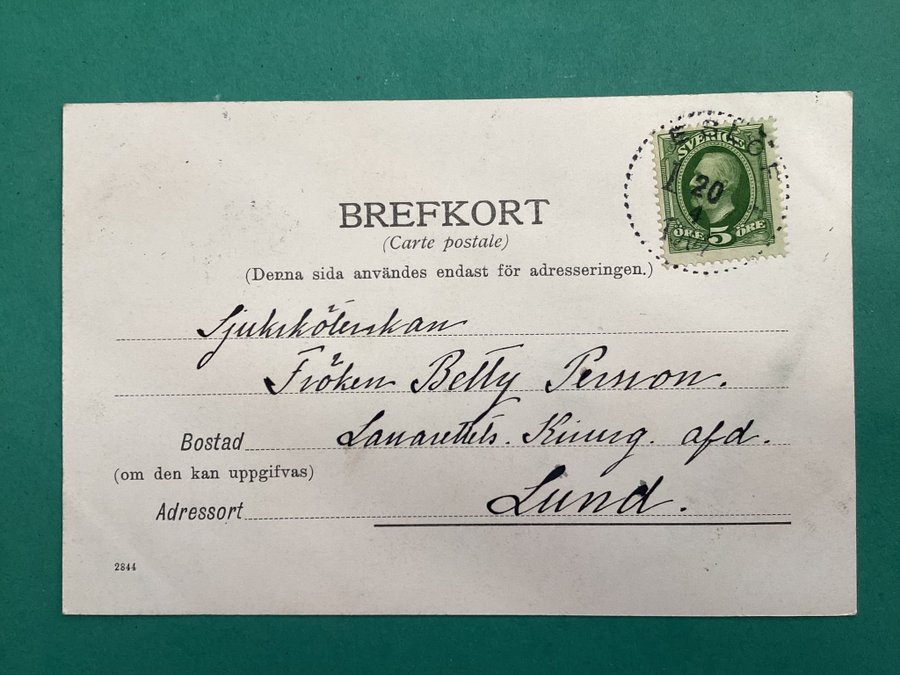 BREFKORT
(Carte postale)
(Denna sida användes endast för adresseringen.)
SVERIGE
20
ÖRE 5 ÖRE
Sjuksköterskan
Fröken Betty Persson.
Bostad Lasarettets. Kirurg. afd.
(om den kan uppgifvas)
Adressort Lund.
2844